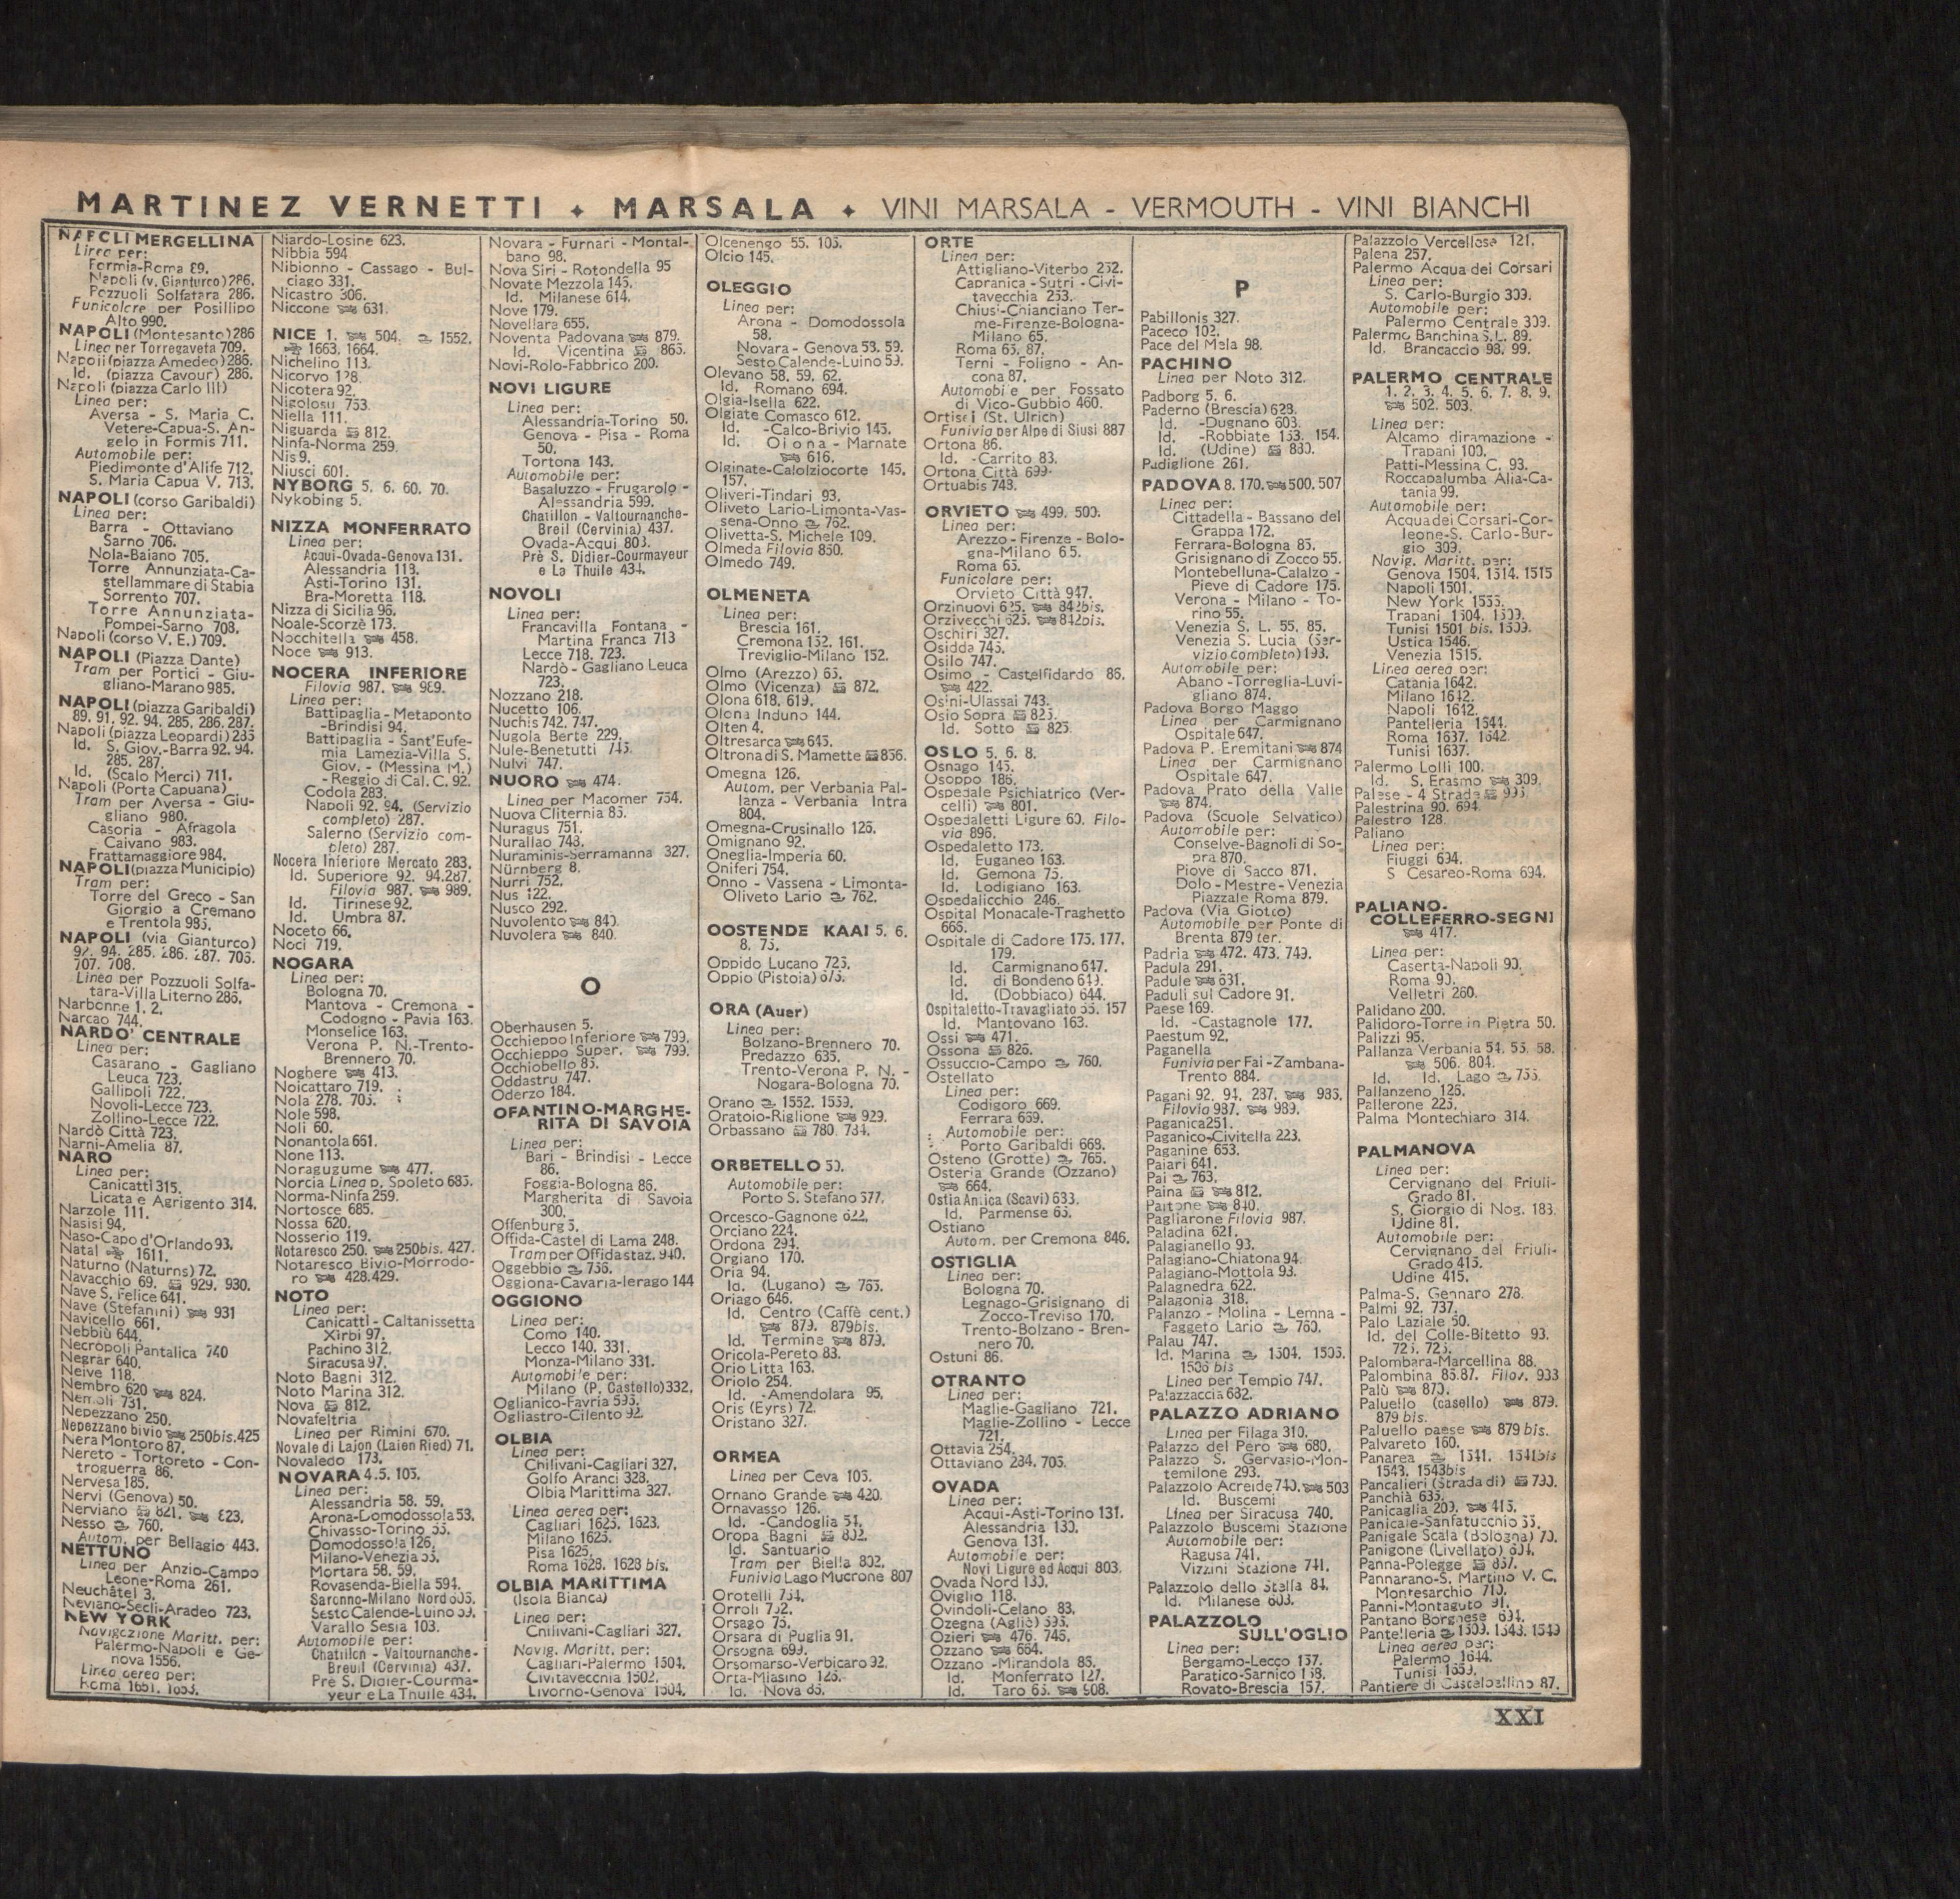 MARTINEZ VERNETTI ✦ MARSALA ✦ VINI MARSALA - VERMOUTH - VINI BIANCHI
NAPOLI MERGELLINA
Linea per:
Formia-Roma 89.
Napoli (v. Gianturco) 286.
Pozzuoli Solfatara 286.
Funicolare per Posillipo
Alto 990.
NAPOLI (Montesanto) 286
Linea per Torregaveta 709.
Napoli (piazza Amedeo) 286.
Id. (piazza Cavour) 286.
Napoli (piazza Carlo III)
Linea per:
Aversa - S. Maria C.
Vetere-Capua-S. An-
gelo in Formis 711.
Automobile per:
Piedimonte d'Alife 712.
S. Maria Capua V. 713.
NAPOLI (corso Garibaldi)
Linea per:
Barra - Ottaviano
Sarno 706.
Nola-Baiano 705.
Torre Annunziata-Ca-
stellammare di Stabia
Sorrento 707.
Torre Annunziata-
Pompei-Sarno 708.
Napoli (corso V. E.) 709.
NAPOLI (Piazza Dante)
Tram per Portici - Giu-
gliano-Marano 985.
NAPOLI (piazza Garibaldi)
89. 91. 92. 94. 285. 286. 287.
Napoli (piazza Leopardi) 285
Id. S. Giov.-Barra 92. 94.
285. 287.
Id. (Scalo Merci) 711.
Napoli (Porta Capuana)
Tram per Aversa - Giu-
gliano 980.
Casoria - Afragola
Caivano 983.
Frattamaggiore 984.
NAPOLI (piazza Municipio)
Tram per:
Torre del Greco - San
Giorgio a Cremano
e Trentola 985.
NAPOLI (via Gianturco)
92. 94. 285. 286. 287. 705.
707. 708.
Linea per Pozzuoli Solfa-
tara-Villa Literno 286.
Narbonne 1. 2.
Narcao 744.
NARDO' CENTRALE
Linea per:
Casarano - Gagliano
Leuca 723.
Gallipoli 722.
Novoli-Lecce 723.
Zollino-Lecce 722.
Nardò Città 723.
Narni-Amelia 87.
NARO
Linea per:
Canicattì 315.
Licata e Agrigento 314.
Narzole 111.
Nasisi 94.
Naso-Capo d'Orlando 93.
Natal 1611.
Naturno (Naturns) 72.
Navacchio 69. 929. 930.
Nave S. Felice 641.
Nave (Stefanini) 931
Navicello 661.
Nebbiù 644.
Necropoli Pantalica 740
Negrar 640.
Neive 118.
Nembro 620 824.
Nemoli 731.
Nepezzano 250.
Nepezzano bivio 250bis. 425
Nera Montoro 87.
Nereto - Tortoreto - Con-
troguerra 86.
Nervesa 185.
Nervi (Genova) 50.
Nerviano 821. 823.
Nesso 760.
Autom. per Bellagio 443.
NETTUNO
Linea per Anzio-Campo
Leone-Roma 261.
Neuchâtel 3.
Neviano-Seclì-Aradeo 723.
NEW YORK
Navigazione Maritt. per:
Palermo-Napoli e Ge-
nova 1556.
Linea aerea per:
Roma 1651. 1653.
Niardo-Losine 623.
Nibbia 594
Nibionno - Cassago - Bul-
ciago 331.
Nicastro 306.
Niccone 631.
NICE 1. 504. 1552.
1663. 1664.
Nichelino 113.
Nicorvo 128.
Nicotera 92.
Nigolosu 753.
Niella 111.
Niguarda 812.
Ninfa-Norma 259.
Nis 9.
Niusci 601.
NYBORG 5. 6. 60. 70.
Nykobing 5.
NIZZA MONFERRATO
Linea per:
Acqui-Ovada-Genova 131.
Alessandria 118.
Asti-Torino 131.
Bra-Moretta 118.
Nizza di Sicilia 96.
Noale-Scorzè 173.
Nocchitella 458.
Noce 913.
NOCERA INFERIORE
Filovia 987. 989.
Linea per:
Battipaglia - Metaponto
-Brindisi 94.
Battipaglia - Sant'Eufe-
mia Lamezia-Villa S.
Giov. - (Messina M.)
- Reggio di Cal. C. 92.
Codola 283.
Napoli 92. 94. (Servizio
completo) 287.
Salerno (Servizio com-
pleto) 287.
Nocera Inferiore Mercato 283.
Id. Superiore 92. 94.287.
Filovia 987. 989.
Id. Tirinese 92.
Id. Umbra 87.
Noceto 66.
Noci 719.
NOGARA
Linea per:
Bologna 70.
Mantova - Cremona -
Codogno - Pavia 163.
Monselice 163.
Verona P. N.-Trento-
Brennero 70.
Noghere 413.
Noicattaro 719.
Nola 278. 705.
Nole 598.
Noli 60.
Nonantola 661.
None 113.
Noragugume 477.
Norcia Linea p. Spoleto 685.
Norma-Ninfa 259.
Nortosce 685.
Nossa 620.
Nosserio 119.
Notaresco 250. 250bis. 427.
Notaresco Bivio-Morrodo-
ro 428.429.
NOTO
Linea per:
Canicattì - Caltanissetta
Xirbi 97.
Pachino 312.
Siracusa 97.
Noto Bagni 312.
Noto Marina 312.
Nova 812.
Novafeltria
Linea per Rimini 670.
Novale di Lajon (Laien Ried) 71.
Novaledo 173.
NOVARA 4. 5. 105.
Linea per:
Alessandria 58. 59.
Arona-Domodossola 53.
Chivasso-Torino 55.
Domodossola 126.
Milano-Venezia 55.
Mortara 58. 59.
Rovasenda-Biella 594.
Saronno-Milano Nord 605.
Sesto Calende-Luino 59.
Varallo Sesia 103.
Automobile per:
Chatillon - Valtournanche-
Breuil (Cervinia) 437.
Prè S. Didier-Courma-
yeur e La Thuile 434.
Novara - Furnari - Montal-
bano 98.
Nova Siri - Rotondella 95
Novate Mezzola 145.
Id. Milanese 614.
Nove 179.
Novellara 655.
Noventa Padovana 879.
Id. Vicentina 865.
Novi-Rolo-Fabbrico 200.
NOVI LIGURE
Linea per:
Alessandria-Torino 50.
Genova - Pisa - Roma
50.
Tortona 143.
Automobile per:
Basaluzzo - Frugarolo -
Alessandria 599.
Chatillon - Valtournanche-
Breil (Cervinia) 437.
Ovada-Acqui 803.
Prè S. Didier-Courmayeur
e La Thuile 434.
NOVOLI
Linea per:
Francavilla Fontana -
Martina Franca 713
Lecce 718. 723.
Nardò - Gagliano Leuca
723.
Nozzano 218.
Nucetto 106.
Nuchis 742. 747.
Nugola Berte 229.
Nule-Benetutti 745.
Nulvi 747.
NUORO 474.
Linea per Macomer 754.
Nuova Cliternia 85.
Nuragus 751.
Nurallao 748.
Nuraminis-Serramanna 327.
Nürnberg 8.
Nurri 752.
Nus 122.
Nusco 292.
Nuvolento 840.
Nuvolera 840.
O
Oberhausen 5.
Occhieppo Inferiore 799.
Occhieppo Super. 799.
Occhiobello 85.
Oddastru 747.
Oderzo 184.
OFANTINO-MARGHE-
RITA DI SAVOIA
Linea per:
Bari - Brindisi - Lecce
86.
Foggia-Bologna 86.
Margherita di Savoia
300.
Offenburg 5.
Offida-Castel di Lama 248.
Tram per Offida staz. 940.
Oggebbio 756.
Oggiona-Cavaria-Ierago 144
OGGIONO
Linea per:
Como 140.
Lecco 140. 331.
Monza-Milano 331.
Automobile per:
Milano (P. Castello) 332.
Oglianico-Favria 595.
Ogliastro-Cilento 92.
OLBIA
Linea per:
Chilivani-Cagliari 327.
Golfo Aranci 328.
Olbia Marittima 327.
Linea aerea per:
Cagliari 1625. 1623.
Milano 1625.
Pisa 1625.
Roma 1628. 1628 bis.
OLBIA MARITTIMA
(Isola Bianca)
Linea per:
Chilivani-Cagliari 327.
Navig. Maritt. per:
Cagliari-Palermo 1504.
Civitavecchia 1502.
Livorno-Genova 1504.
Olcenengo 55. 105.
Olcio 145.
OLEGGIO
Linea per:
Arona - Domodossola
58.
Novara - Genova 53. 59.
Sesto Calende-Luino 59.
Olevano 58. 59. 62.
Id. Romano 694.
Olgia-Isella 622.
Olgiate Comasco 612.
Id. -Calco-Brivio 145.
Id. Olona - Marnate
616.
Olginate-Calolziocorte 145.
157.
Oliveri-Tindari 93.
Oliveto Lario-Limonta-Vas-
sena-Onno 762.
Olivetta-S. Michele 109.
Olmeda Filovia 850.
Olmedo 749.
OLMENETA
Linea per:
Brescia 161.
Cremona 152. 161.
Treviglio-Milano 152.
Olmo (Arezzo) 65.
Olmo (Vicenza) 872.
Olona 618. 619.
Olona Induno 144.
Olten 4.
Oltresarca 645.
Oltrona di S. Mamette 856.
Omegna 126.
Autom. per Verbania Pal-
lanza - Verbania Intra
804.
Omegna-Crusinallo 126.
Omignano 92.
Oneglia-Imperia 60.
Oniferi 754.
Onno - Vassena - Limonta-
Oliveto Lario 762.
OOSTENDE KAAI 5. 6.
8. 75.
Oppido Lucano 725.
Oppio (Pistoia) 675.
ORA (Auer)
Linea per:
Bolzano-Brennero 70.
Predazzo 635.
Trento-Verona P. N. -
Nogara-Bologna 70.
Orano 1552. 1559.
Oratoio-Riglione 929.
Orbassano 780. 784.
ORBETELLO 50.
Automobile per:
Porto S. Stefano 577.
Orcesco-Gagnone 622.
Orciano 224.
Ordona 294.
Orgiano 170.
Oria 94.
Id. (Lugano) 765.
Oriago 646.
Id. Centro (Caffè cent.)
879. 879bis.
Id. Termine 879.
Oricola-Pereto 83.
Orio Litta 163.
Oriolo 254.
Id. -Amendolara 95.
Oris (Eyrs) 72.
Oristano 327.
ORMEA
Linea per Ceva 106.
Ornano Grande 420.
Ornavasso 126.
Id. -Candoglia 54.
Oropa Bagni 802.
Id. Santuario
Tram per Biella 802.
Funivia Lago Mucrone 807
Orotelli 754.
Orroli 752.
Orsago 75.
Orsara di Puglia 91.
Orsogna 699.
Orsomarso-Verbicaro 92.
Orta-Miasino 126.
Id. Nova 86.
ORTE
Linea per:
Attigliano-Viterbo 252.
Capranica - Sutri - Civi-
tavecchia 253.
Chiusi-Chianciano Ter-
me-Firenze-Bologna-
Milano 65.
Roma 65. 87.
Terni - Foligno - An-
cona 87.
Automobile per Fossato
di Vico-Gubbio 460.
Ortisei (St. Ulrich)
Funivia per Alpe di Siusi 887
Ortona 86.
Id. -Carrito 83.
Ortona Città 699.
Ortuabis 748.
ORVIETO 499. 500.
Linea per:
Arezzo - Firenze - Bolo-
gna-Milano 65.
Roma 65.
Funicolare per:
Orvieto Città 947.
Orzinuovi 625. 842bis.
Orzivecchi 625. 842bis.
Oschiri 327.
Osidda 745.
Osilo 747.
Osimo - Castelfidardo 86.
422.
Osini-Ulassai 743.
Osio Sopra 825.
Id. Sotto 825.
OSLO 5. 6. 8.
Osnago 145.
Osoppo 186.
Ospedale Psichiatrico (Ver-
celli) 801.
Ospedaletti Ligure 60. Filo-
via 896.
Ospedaletto 173.
Id. Euganeo 163.
Id. Gemona 75.
Id. Lodigiano 163.
Ospedalicchio 246.
Ospital Monacale-Traghetto
666.
Ospitale di Cadore 175. 177.
179.
Id. Carmignano 647.
Id. di Bondeno 649.
Id. (Dobbiaco) 644.
Ospitaletto-Travagliato 55. 157
Id. Mantovano 163.
Ossi 471.
Ossona 826.
Ossuccio-Campo 760.
Ostellato
Linea per:
Codigoro 669.
Ferrara 669.
Automobile per:
Porto Garibaldi 668.
Osteno (Grotte) 765.
Osteria Grande (Ozzano)
664.
Ostia Antica (Scavi) 633.
Id. Parmense 65.
Ostiano
Autom. per Cremona 846.
OSTIGLIA
Linea per:
Bologna 70.
Legnago-Grisignano di
Zocco-Treviso 170.
Trento-Bolzano - Bren-
nero 70.
Ostuni 86.
OTRANTO
Linea per:
Maglie-Gagliano 721.
Maglie-Zollino - Lecce
721.
Ottavia 254.
Ottaviano 284. 706.
OVADA
Linea per:
Acqui-Asti-Torino 131.
Alessandria 130.
Genova 131.
Automobile per:
Novi Ligure ed Acqui 803.
Ovada Nord 130.
Oviglio 118.
Ovindoli-Celano 83.
Ozegna (Agliè) 595.
Ozieri 476. 746.
Ozzano 664.
Ozzano -Mirandola 85.
Id. Monferrato 127.
Id. Taro 65. 908.
P
Pabillonis 327.
Paceco 102.
Pace del Mela 98.
PACHINO
Linea per Noto 312.
Padborg 5. 6.
Paderno (Brescia) 623.
Id. -Dugnano 603.
Id. -Robbiate 153. 154.
Id. (Udine) 880.
Padiglione 261.
PADOVA 8. 170. 500. 507
Linea per:
Cittadella - Bassano del
Grappa 172.
Ferrara-Bologna 85.
Grisignano di Zocco 55.
Montebelluna-Calalzo -
Pieve di Cadore 175.
Verona - Milano - To-
rino 55.
Venezia S. L. 55. 85.
Venezia S. Lucia (Ser-
vizio completo) 193.
Automobile per:
Abano -Torreglia-Luvi-
gliano 874.
Padova Borgo Maggo
Linea per Carmignano
Ospitale 647.
Padova P. Eremitani 874
Linea per Carmignano
Ospitale 647.
Padova Prato della Valle
874.
Padova (Scuole Selvatico)
Automobile per:
Conselve-Bagnoli di So-
pra 870.
Piove di Sacco 871.
Dolo - Mestre - Venezia
Piazzale Roma 879.
Padova (Via Giotto)
Automobile per Ponte di
Brenta 879 ter.
Padria 472. 473. 749.
Padula 291.
Padule 631.
Paduli sul Cadore 91.
Paese 169.
Id. -Castagnole 177.
Paestum 92.
Paganella
Funivia per Fai -Zambana-
Trento 884.
Pagani 92. 94. 287. 986.
Filovia 987. 989.
Paganica 251.
Paganico-Civitella 223.
Paganine 653.
Paiari 641.
Pai 763.
Paina 812.
Paitone 840.
Pagliarone Filovia 987.
Paladina 621.
Palagianello 93.
Palagiano-Chiatona 94.
Palagiano-Mottola 93.
Palagnedra 622.
Palagonia 318.
Palanzo - Molina - Lemna -
Faggeto Lario 760.
Palau 747.
Id. Marina 1504. 1505.
1506 bis
Linea per Tempio 747.
Palazzaccia 632.
PALAZZO ADRIANO
Linea per Filaga 310.
Palazzo del Pero 680.
Palazzo S. Gervasio-Mon-
temilone 293.
Palazzolo Acreide 740. 503
Id. Buscemi
Linea per Siracusa 740.
Palazzolo Buscemi Stazione
Automobile per:
Ragusa 741.
Vizzini Stazione 741.
Palazzolo dello Stella 84.
Id. Milanese 603.
PALAZZOLO
SULL'OGLIO
Linea per:
Bergamo-Lecco 157.
Paratico-Sarnico 158.
Rovato-Brescia 157.
Palazzolo Vercellese 121.
Palena 257.
Palermo Acqua dei Corsari
Linea per:
S. Carlo-Burgio 309.
Automobile per:
Palermo Centrale 309.
Palermo Banchina S.L. 89.
Id. Brancaccio 98. 99.
PALERMO CENTRALE
1. 2. 3. 4. 5. 6. 7. 8. 9.
502. 503.
Linea per:
Alcamo diramazione -
Trapani 100.
Patti-Messina C. 93.
Roccapalumba Alia-Ca-
tania 99.
Automobile per:
Acqua dei Corsari-Cor-
leone-S. Carlo-Bur-
gio 309.
Navig. Maritt. per:
Genova 1504. 1514. 1515
Napoli 1501.
New York 1555.
Trapani 1504. 1509.
Tunisi 1501 bis. 1509.
Ustica 1546.
Venezia 1515.
Linea aerea per:
Catania 1642.
Milano 1642.
Napoli 1642.
Pantelleria 1644.
Roma 1637. 1642.
Tunisi 1637.
Palermo Lolli 100.
Id. S. Erasmo 309.
Palese - 4 Strade 995.
Palestrina 90. 694.
Palestro 128.
Paliano
Linea per:
Fiuggi 694.
S. Cesareo-Roma 694.
PALIANO-
COLLEFERRO-SEGNI
417.
Linea per:
Caserta-Napoli 90.
Roma 90.
Velletri 260.
Palidano 200.
Palidoro-Torre in Pietra 50.
Palizzi 95.
Pallanza Verbania 54. 55. 58.
506. 804.
Id. Id. Lago 755.
Pallanzeno 126.
Pallerone 225.
Palma Montechiaro 314.
PALMANOVA
Linea per:
Cervignano del Friuli-
Grado 81.
S. Giorgio di Nog. 183.
Udine 81.
Automobile per:
Cervignano del Friuli-
Grado 415.
Udine 415.
Palma-S. Gennaro 278.
Palmi 92. 737.
Palo Laziale 50.
Id. del Colle-Bitetto 93.
725. 726.
Palombara-Marcellina 88.
Palombina 86.87. Filov. 933
Palù 870.
Paluello (casello) 879.
879 bis.
Paluello paese 879 bis.
Palvareto 160.
Panarea 1541. 1541bis
1543. 1543bis
Pancalieri (Strada di) 790.
Panchià 635.
Panicaglia 209. 415.
Panicale-Sanfatucchio 65.
Panigale Scala (Bologna) 70.
Panigone (Livellato) 604.
Panna-Polegge 867.
Pannarano-S. Martino V. C.
Montesarchio 710.
Panni-Montaguto 91.
Pantano Borghese 694.
Pantelleria 1509. 1548. 1549
Linea aerea per:
Palermo 1644.
Tunisi 1659.
Pantiere di Castelbellino 87.
XXI